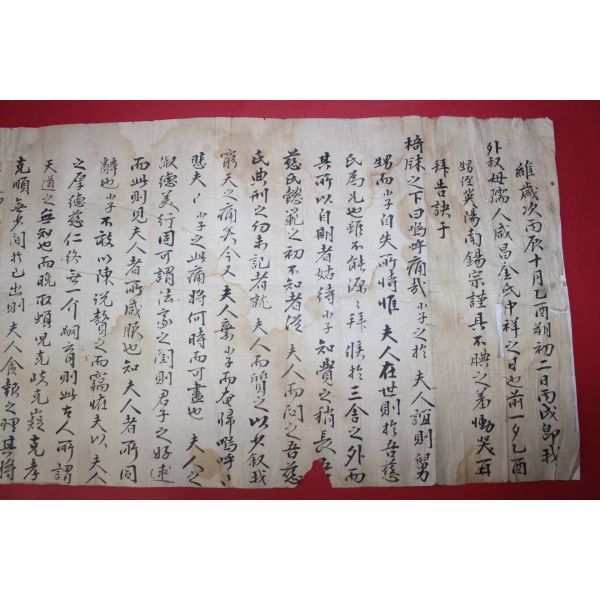 維歲次丙辰十月乙酉朔初二日丙戌卽我
外叔母孺人咸昌金氏中祥之日也前一夕乙酉
甥侄英陽南錫宗謹具不腆之羞慟哭再
拜告訣于
椅牀之下曰嗚呼痛哉小子之於 夫人誼則舅
甥而小子自失所恃惟 夫人在世則於吾慈
氏爲兄也雖不能源源拜候於三舍之外而
其所以自期者姑待小子知覺之稍長吾
慈氏懿範之初不知者從 夫人而問之吾慈
氏典刑之勿未記者就 夫人而質之以少叙我
窮天之痛矣今又 夫人棄小子而奄歸嗚呼〻
悲夫〻小子之此痛將何時而可盡也 夫人之
淑德美行固可謂法家之 則君子之好逑
而此則見夫人者所感服也知夫人者所同
辭也小子不敢以陳說贅之而竊惟夫以 夫人
之厚德慈仁終無一介嗣育則此古人所謂
天道之無知也而晩取螟兒克岐克嶷克孝
克順無欠間於己出則 夫人食報之理其將